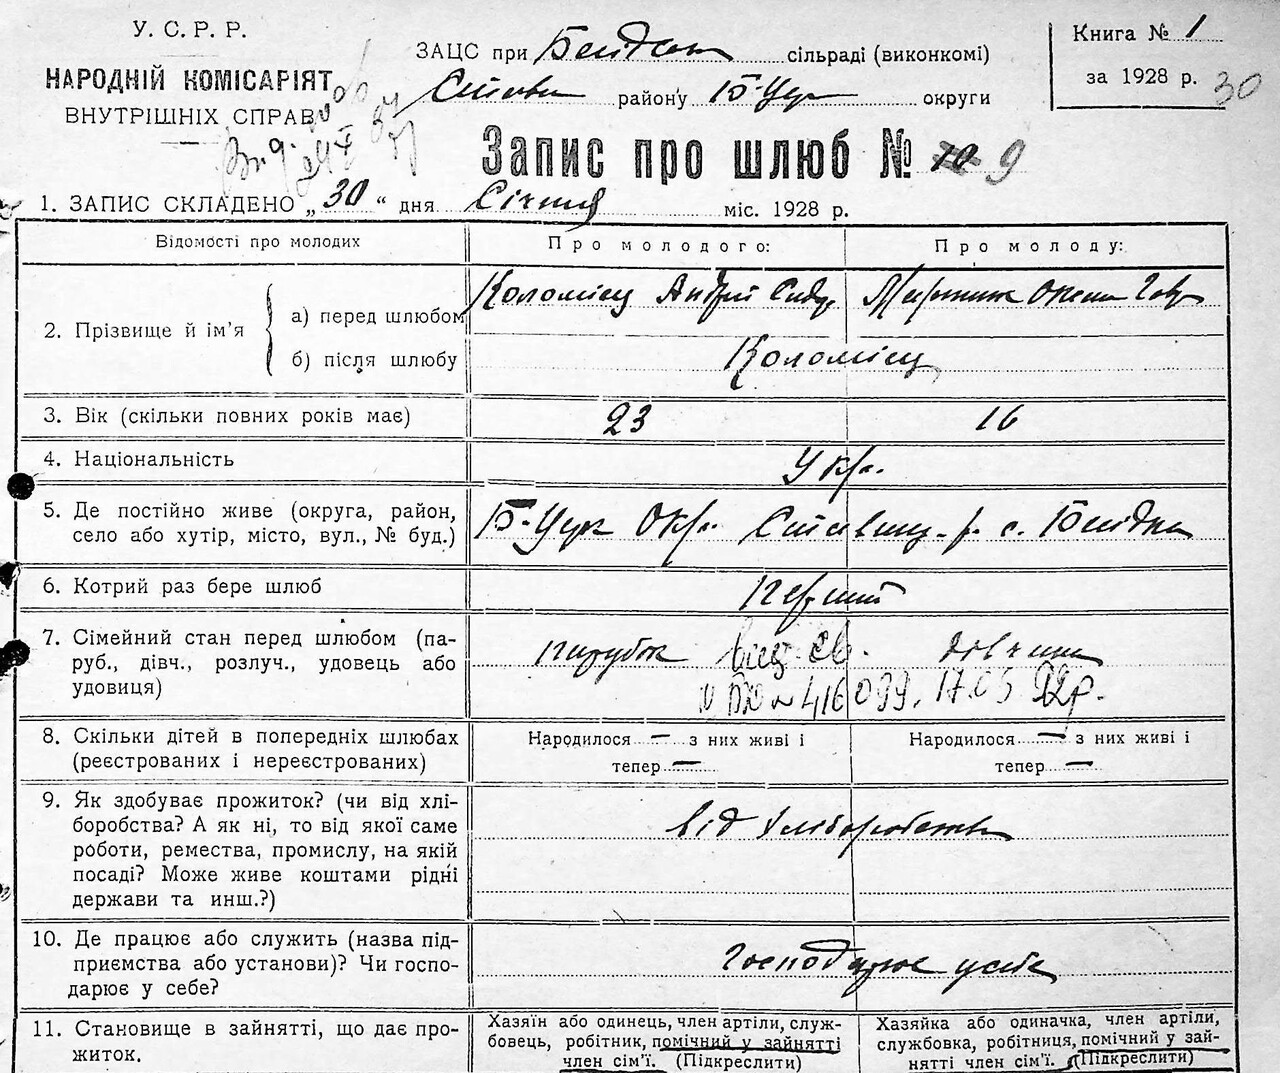 У. С. Р. Р.
НАРОДНІЙ КОМІСАРІЯТ
ВНУТРІШНІХ СПРАВ
ЗАЦС при сільраді (виконкомі)
району Б-Церк округи
Книга № 1
за 1928 р. 30
Запис про шлюб № 10 9
1. ЗАПИС СКЛАДЕНО „30“ дня Січня міс. 1928 р.
Відомості про молодих
Про молодого:
Про молоду:
2. Прізвище й ім’я
а) перед шлюбом
Коломієць Андрій Сидор
Оксана Гавр
б) після шлюбу
Коломієць
3. Вік (скільки повних років має)
23
16
4. Національність
Укр.
5. Де постійно живе (округа, район,
село або хутір, місто, вул., № буд.)
Б-Церк Окр. Ставищ. р. с.
6. Котрий раз бере шлюб
Перший
7. Сімейний стан перед шлюбом (па-
руб., дівч., розлуч., удовець або
удовиця)
парубок
дівчина
416099. 17.05 92р.
8. Скільки дітей в попередніх шлюбах
(реєстрованих і нереєстрованих)
Народилося — з них живі і
тепер —
Народилося — з них живі і
тепер —
9. Як здобуває прожиток? (чи від хлі-
боробства? А як ні, то від якої саме
роботи, ремества, промислу, на якій
посаді? Може живе коштами рідні
держави та инш.?)
від хліборобства
10. Де працює або служить (назва під-
приємства або установи)? Чи госпо-
дарює у себе?
Господарює у себе
11. Становище в зайнятті, що дає про-
житок.
Хазяїн або одинець, член артіли, служ-
бовець, робітник, помічний у зайнятті
член сім’ї. (Підкреслити)
Хазяйка або одиначка, член артіли,
службовка, робітниця, помічний у зай-
нятті член сім’ї. (Підкреслити)